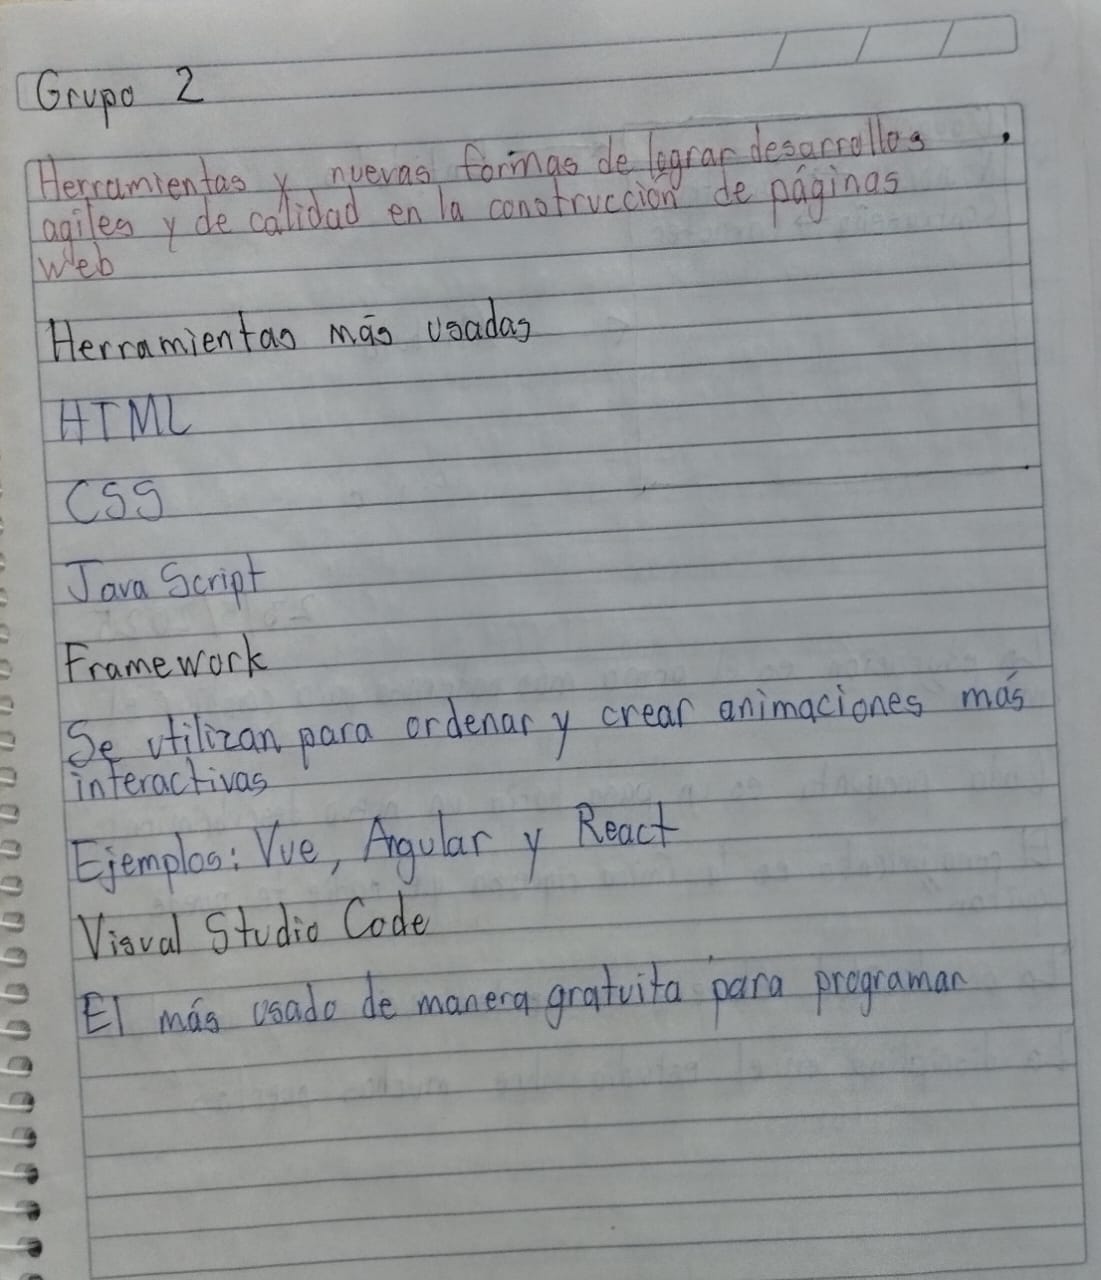 Grupo 2
Herramientas y nuevas formas de lograr desarrollos
agiles y de calidad en la construcción de páginas
web
Herramientas más usadas
HTML
CSS
Java Script
Framework
Se utilizan para ordenar y crear animaciones más
interactivas
Ejemplos: Vue, Angular y React
Visual Studio Code
El más usado de manera gratuita para programar